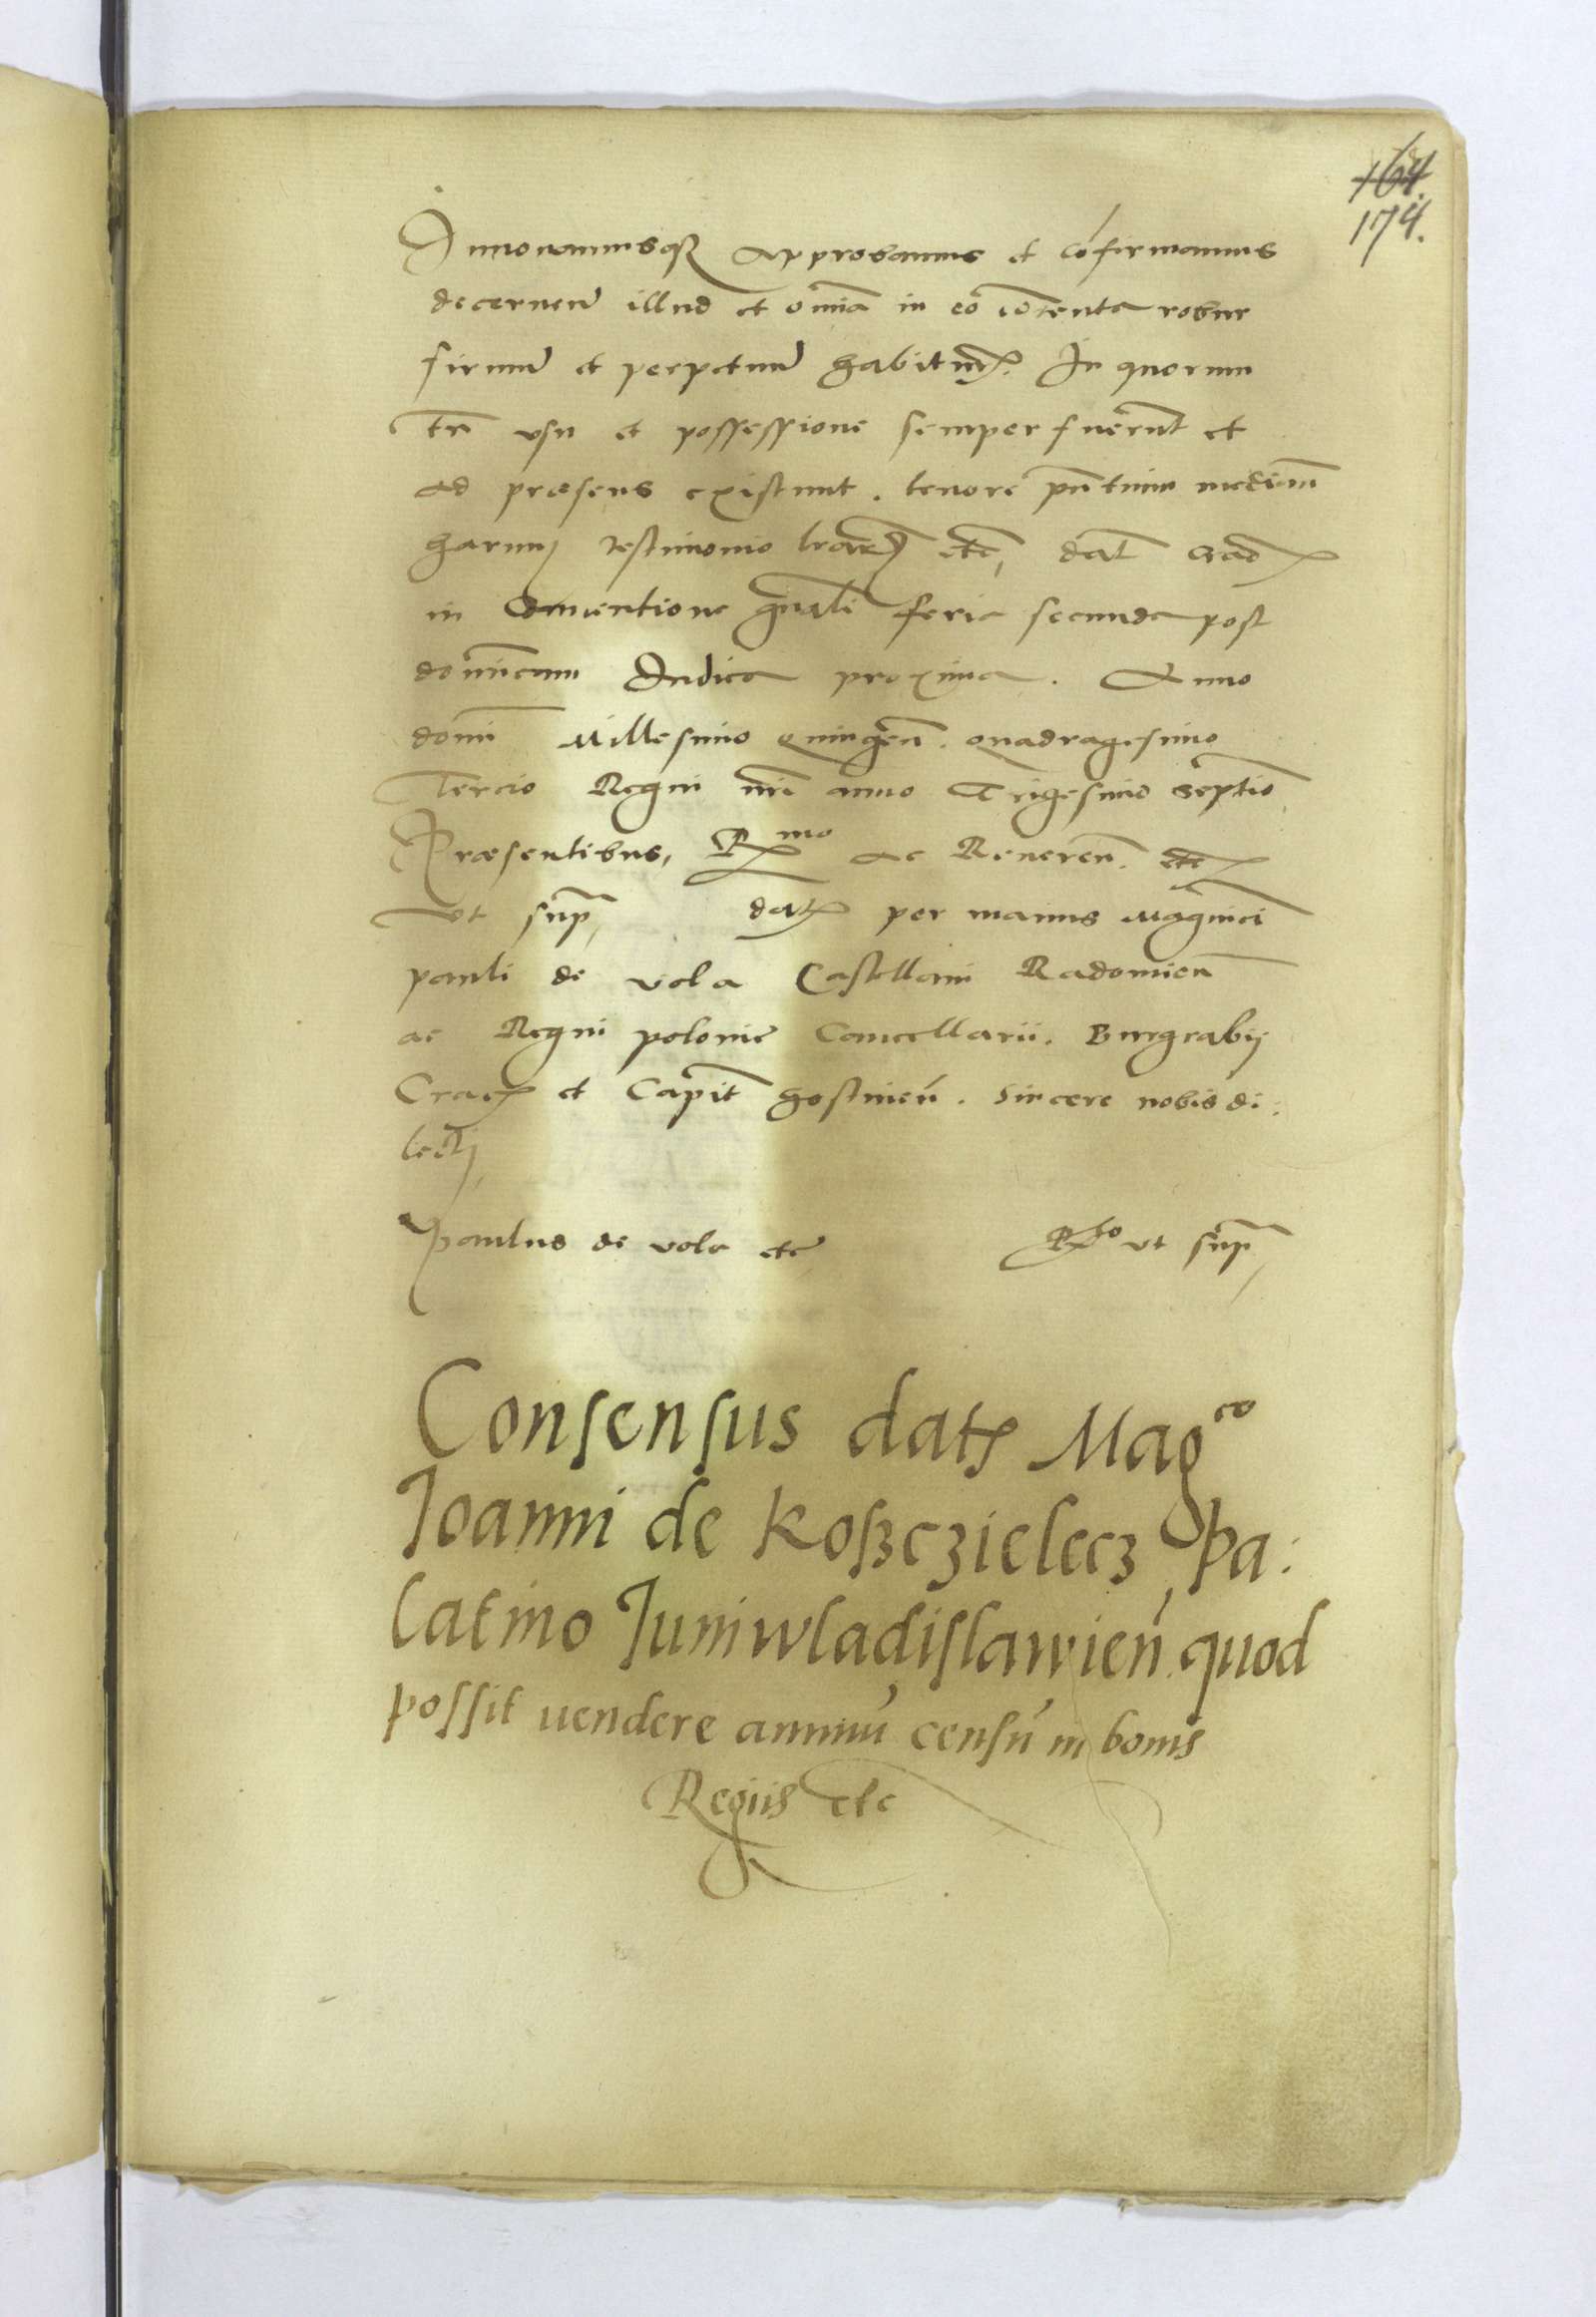 164.
174.
Innovamusq3 approbamus et cōfirmamus
decernen̄ illud et om̄ia in eo cōtenta robur
firmū et perpetuū habitur̄. In quorum
tn̄ usu et possessione semper fuerūt et
ad præsens existunt. tenore p̄ntium mediān
harum testimonio lr̄ar̄ etc, Dat̄ Crac̄
in Conventione gn̄ali feria secunda post
dominicam Judica proxima. Anno
domi Millesimo quingen̄. quadragesimo
Tercio Regni nr̄i anno Trigesimo septīo
Præsentibus, R̄mo ac Reveren̄. etc
ut sup̄, dat̄ per manus Magnici
pauli de vola Castellani Radomien̄
ac Regni polonie Cancellarii. Burgrabij
Crac̄ et Capit̄ gostinen̄. Sincere nobis di:
lecti,
Paulus de vola etc R̄to ut sup̄,
Consensus dat̄ Mag^co
Joanni de Koßczielecz Pa:
latino Juniwladislawień quod
possit vendere annuū censū in bonis
Regiis etc